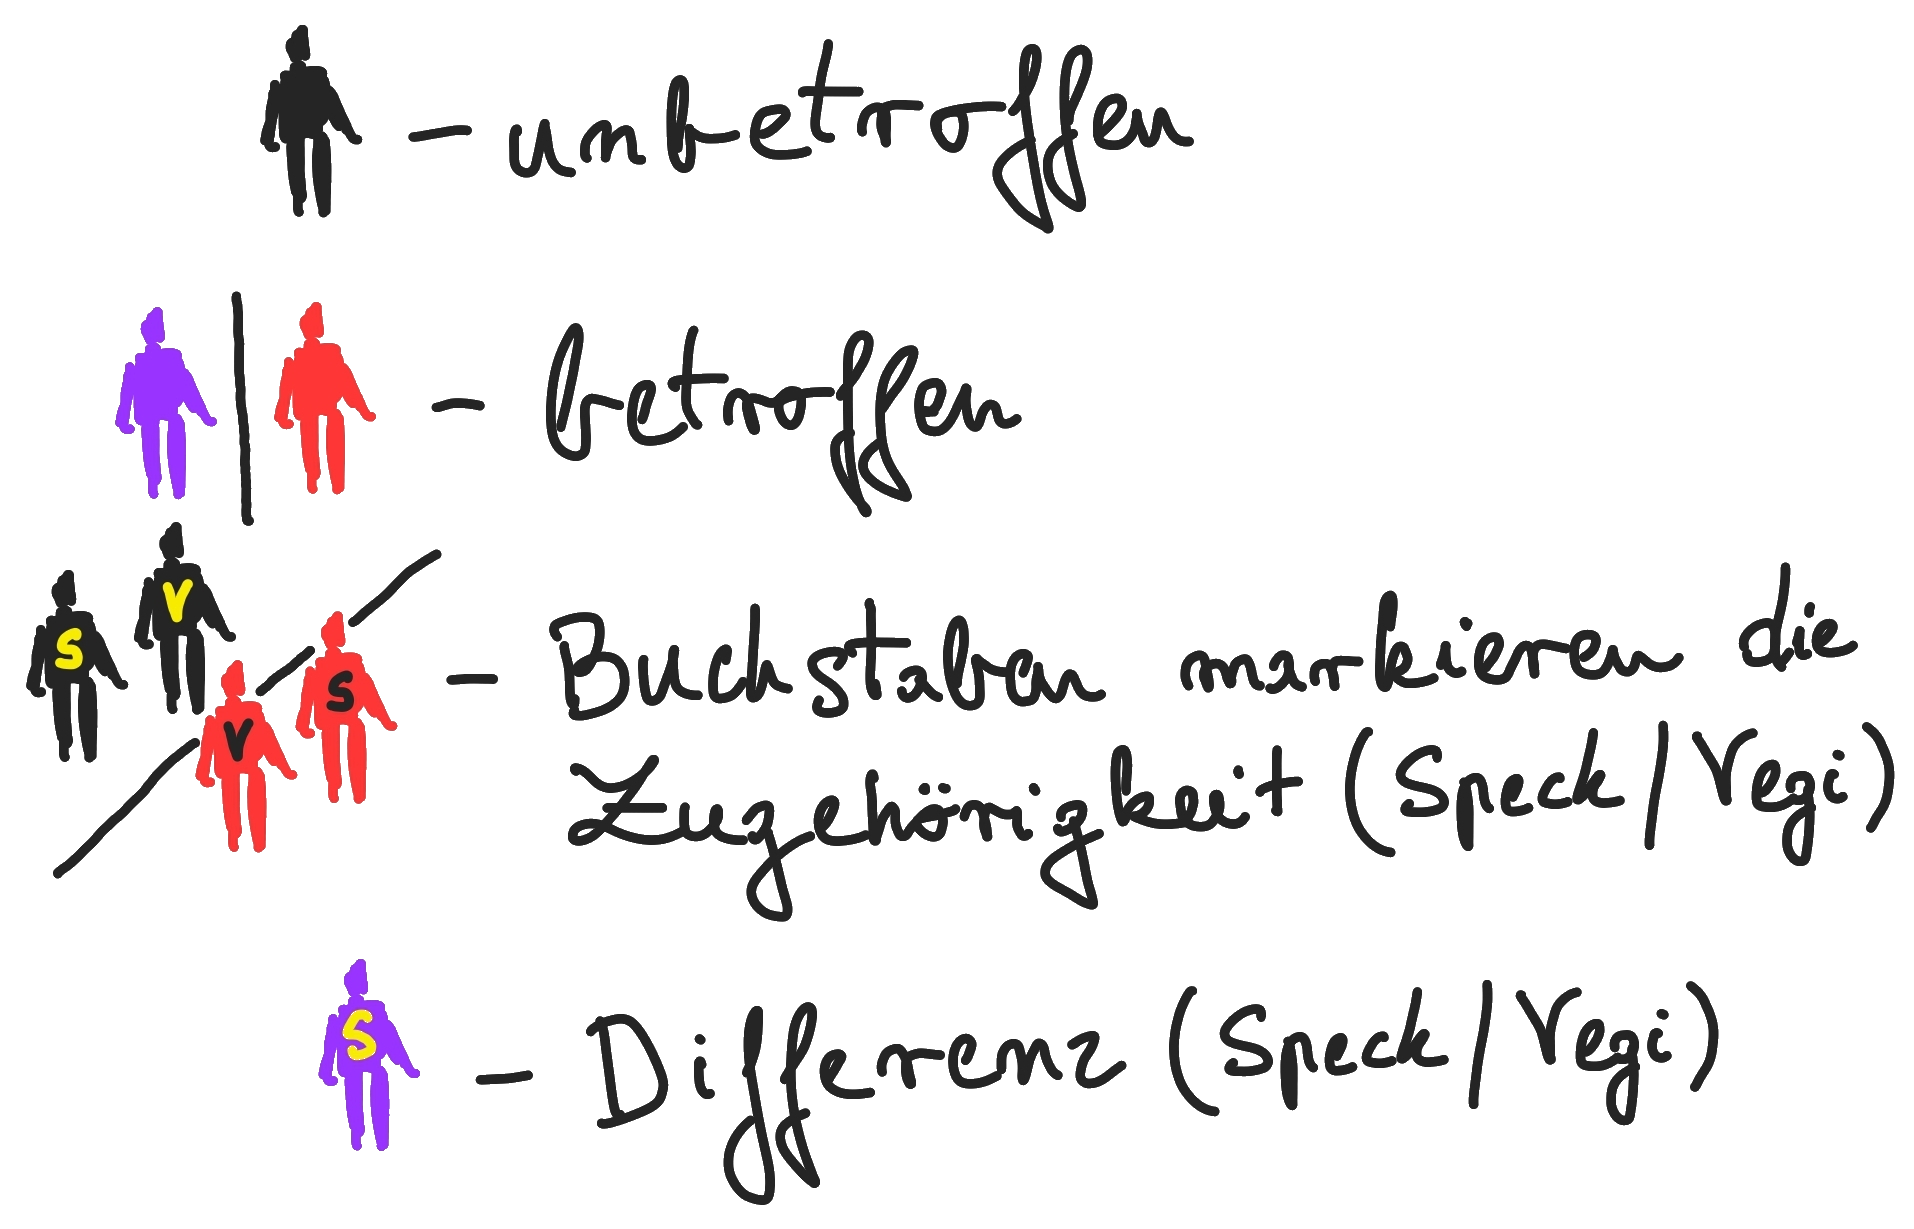 - unbetroffen
- betroffen
S V V S - Buchstaben markieren die
Zugehörigkeit (Speck/Vegi)
S - Differenz (Speck/Vegi)